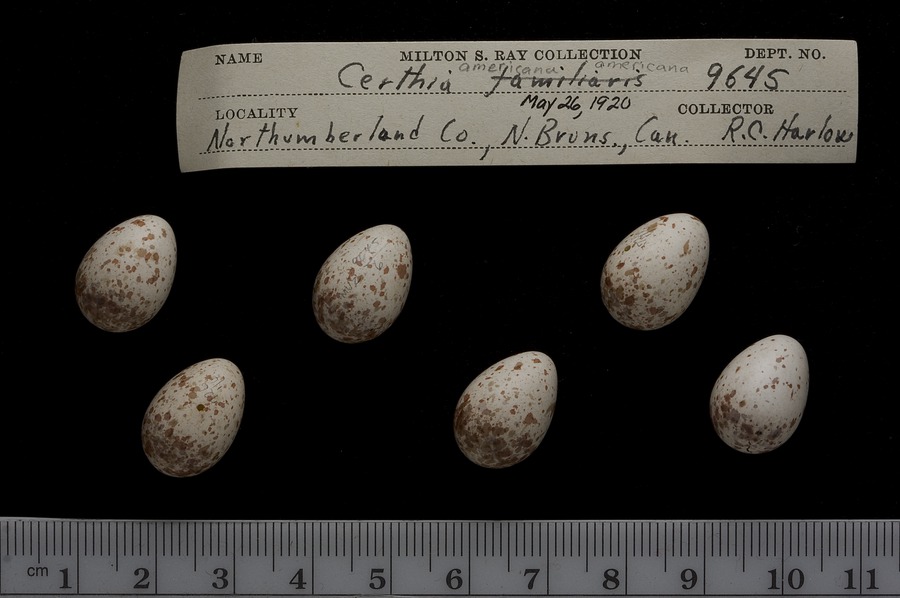 NAME MILTON S. RAY COLLECTION DEPT. NO.
americana americana
Certhia familiaris 9645
May 26, 1920
LOCALITY COLLECTOR
Northumberland Co., N. Bruns., Can. R.C. Harlow
cm 1 2 3 4 5 6 7 8 9 10 11